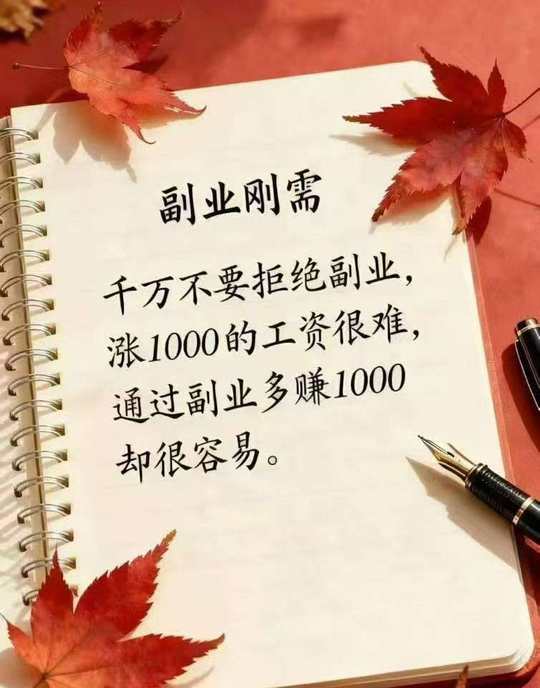 副业刚需
千万不要拒绝副业，
涨1000的工资很难，
通过副业多赚1000
却很容易。